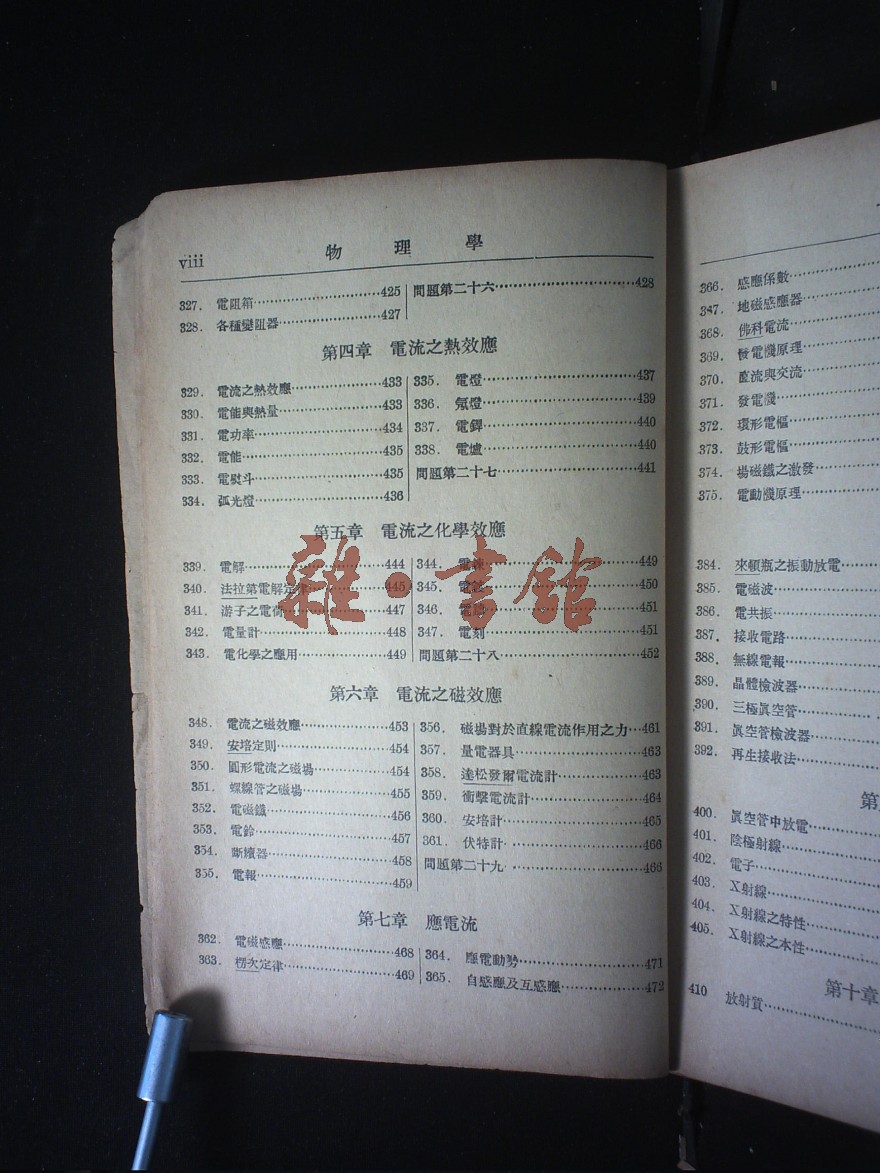 viii 物理學
327. 電阻箱……425
328. 各種變阻器……427
問題第二十六……428
第四章 電流之熱效應
329. 電流之熱效應……433
330. 電能與熱量……433
331. 電功率……434
332. 電能……435
333. 電熨斗……435
334. 弧光燈……436
335. 電燈……437
336. 氖燈……439
337. 電銲……440
338. 電爐……440
問題第二十七……441
第五章 電流之化學效應
339. 電解……444
340. 法拉第電解定律……445
341. 游子之電荷……447
342. 電量計……448
343. 電化學之應用……449
344. 電……449
345. 電……450
346. 電……451
347. 電刻……451
問題第二十八……452
雜·書館
第六章 電流之磁效應
348. 電流之磁效應……453
349. 安培定則……454
350. 圓形電流之磁場……454
351. 螺線管之磁場……455
352. 電磁鐵……456
353. 電鈴……457
354. 斷續器……458
355. 電報……459
356. 磁場對於直線電流作用之力…461
357. 量電器具……463
358. 達松發爾電流計……463
359. 衝擊電流計……464
360. 安培計……465
361. 伏特計……466
問題第二十九……466
第七章 應電流
362. 電磁感應……468
363. 楞次定律……469
364. 應電動勢……471
365. 自感應及互感應……472
366. 感應係數……
347. 地磁感應器……
368. 佛科電流……
369. 發電機原理……
370. 直流與交流……
371. 發電機……
372. 環形電樞……
373. 鼓形電樞……
374. 場磁鐵之激發……
375. 電動機原理……
384. 來頓瓶之振動放電……
385. 電磁波……
386. 電共振……
387. 接收電路……
388. 無線電報……
389. 晶體檢波器……
390. 三極眞空管……
391. 眞空管檢波器……
392. 再生接收法……
第
400. 眞空管中放電……
401. 陰極射線……
402. 電子……
403. X射線……
404. X射線之特性……
405. X射線之本性……
第十章
410 放射質……